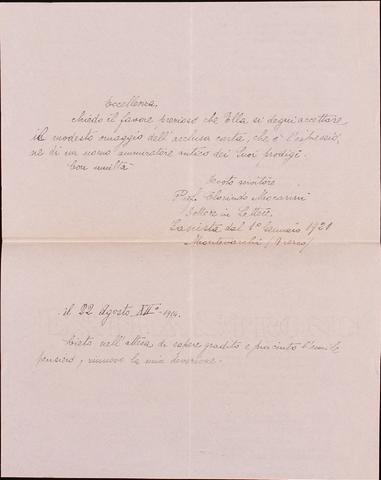 Eccellenza,
chiedo il favore prezioso che Ella si degni accettare
il modesto omaggio dell'acclusa carta, che è l'espressio,
ne di un uomo ammiratore antico dei Suoi prodigi.
Con umiltà
Prof. Clorindo
Dottore in Lettere.
Fascista dal 1° Gennaio 1921
Montevarchi (Arezzo)
il 22 Agosto XII°-1934.
Lieto nell'attesa di sapere gradito e l'umile
pensiero, rinnovo la mia devozione.